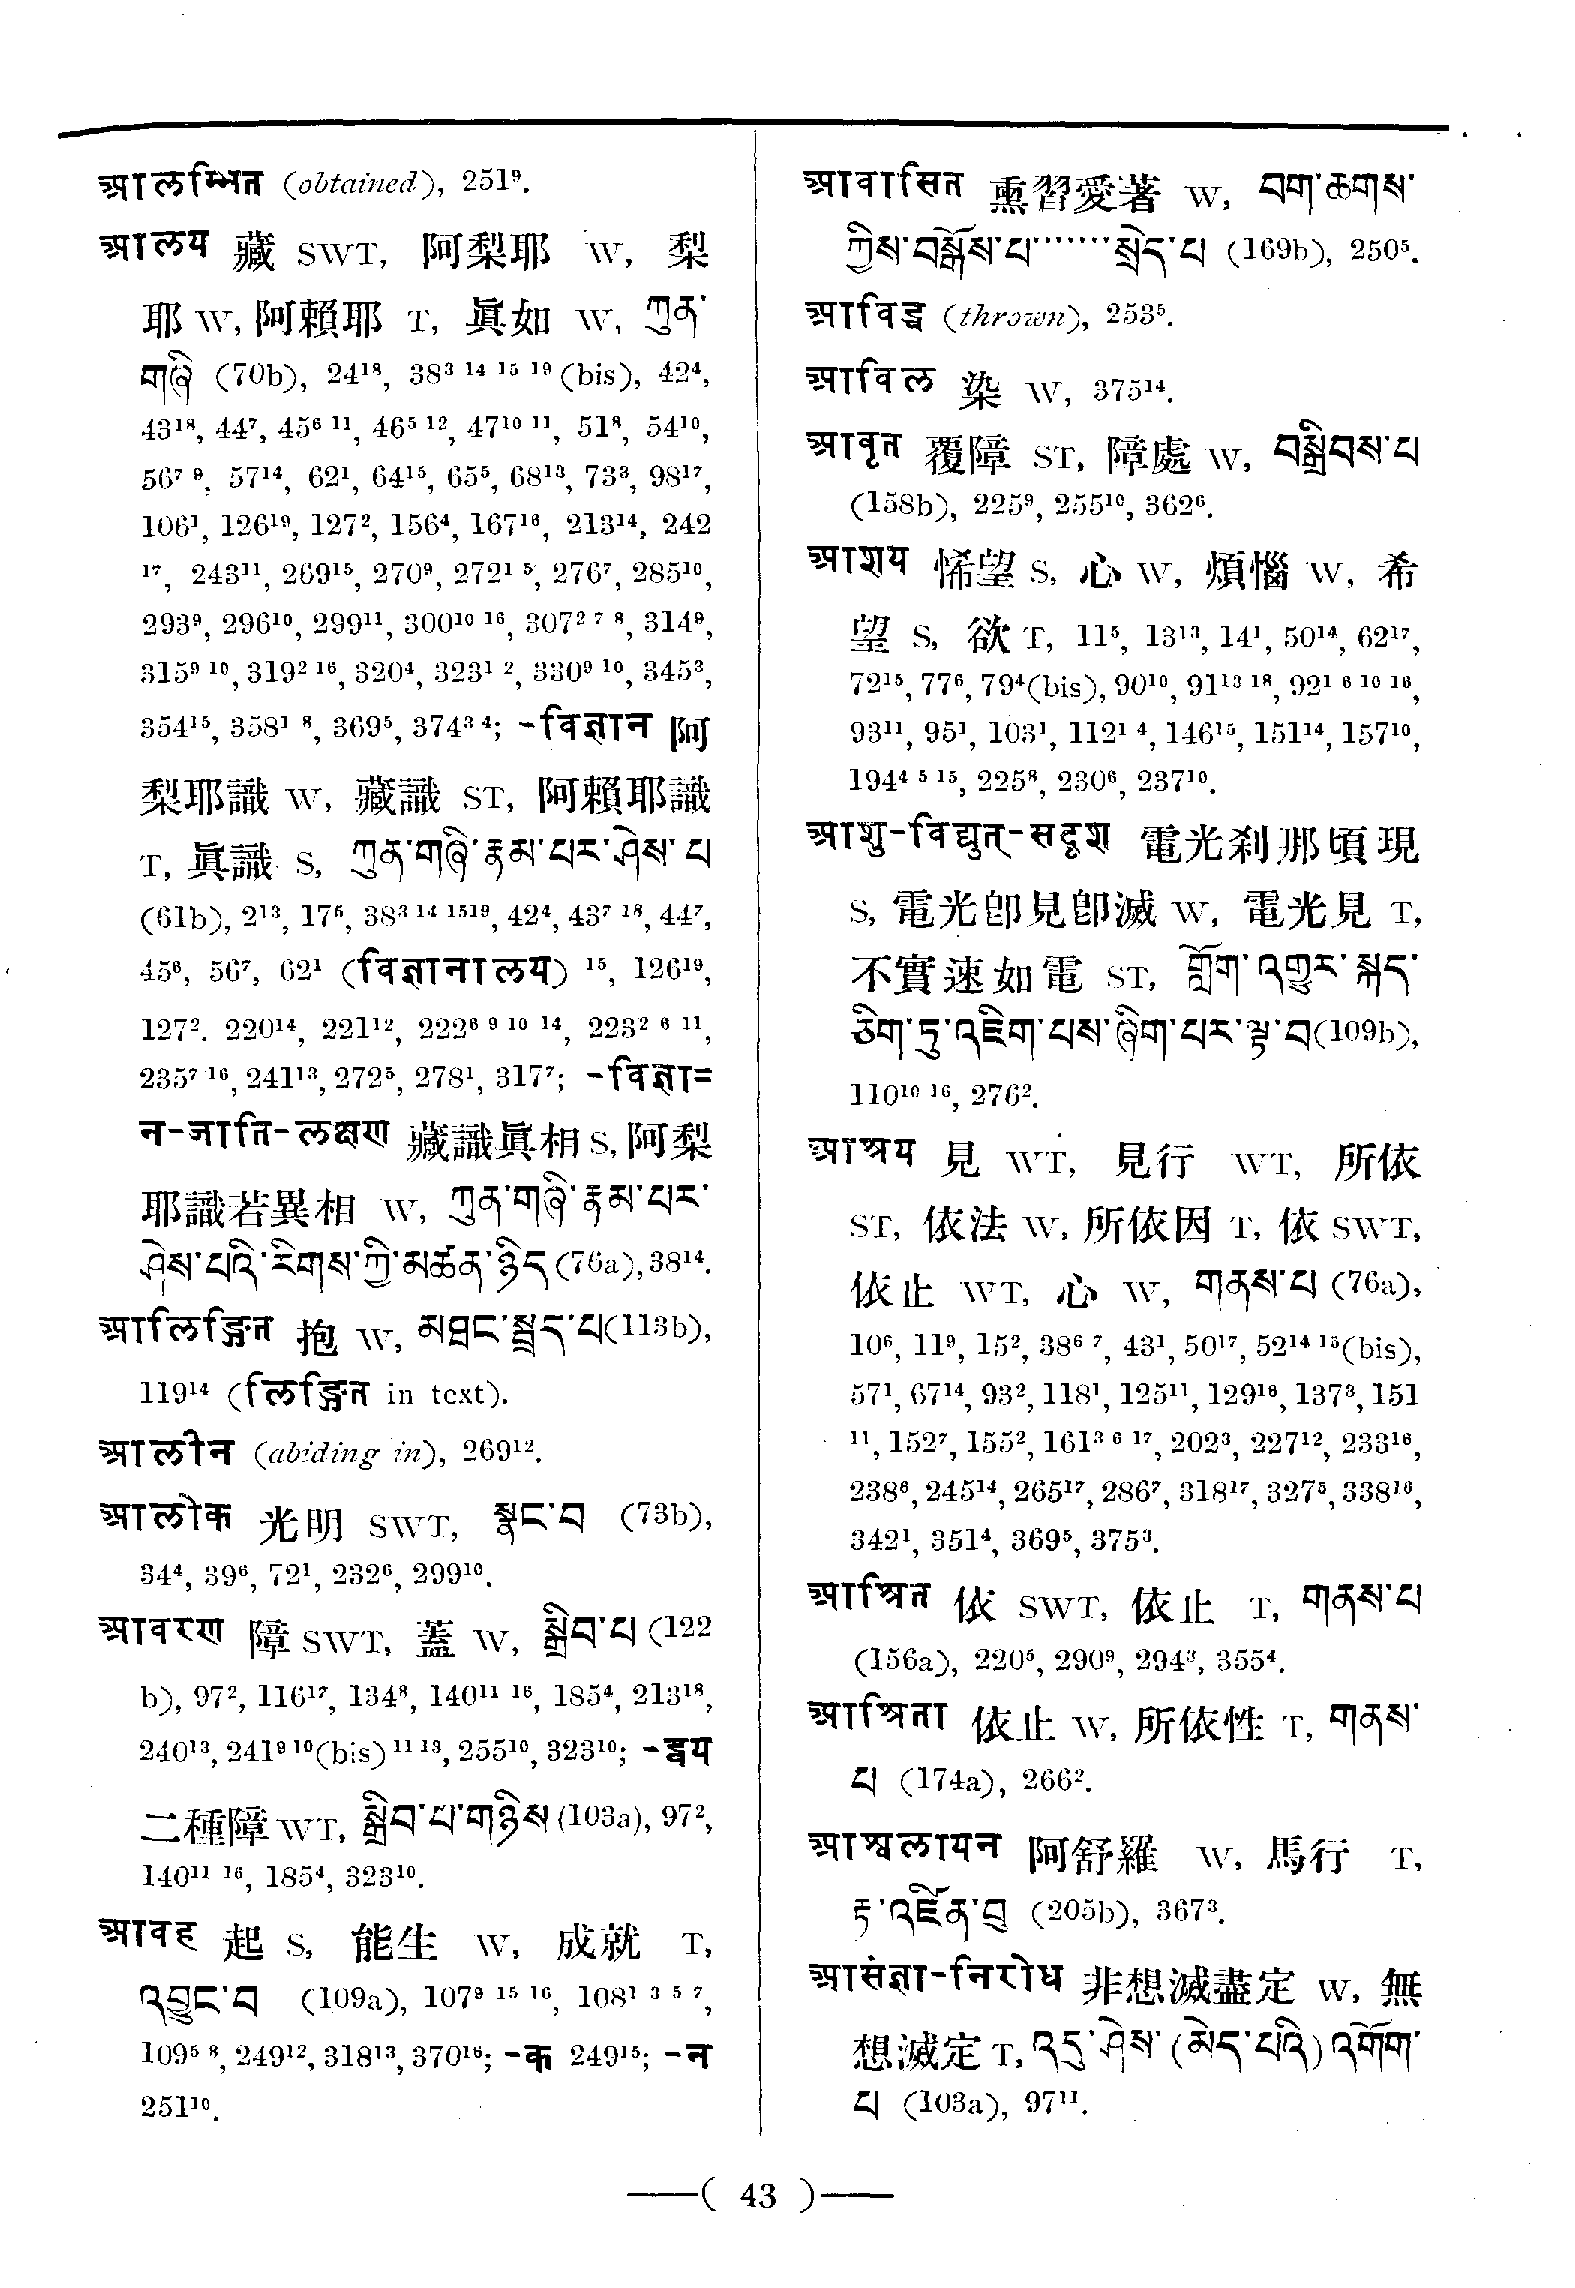 आलम्भित (obtained), 251⁹.
आलय 藏 SWT, 阿梨耶 W, 梨
耶 W, 阿賴耶 T, 眞如 W, ཀུན་
གཞི (70b), 24¹⁸, 38³ ¹⁴ ¹⁵ ¹⁹ (bis), 42⁴,
43¹⁸, 44⁷, 45⁶ ¹¹, 46⁵ ¹², 47¹⁰ ¹¹, 51⁸, 54¹⁰,
56⁷ ⁹, 57¹⁴, 62¹, 64¹⁵, 65⁵, 68¹³, 73³, 98¹⁷,
106¹, 126¹⁹, 127², 156⁴, 167¹⁶, 213¹⁴, 242
¹⁷, 243¹¹, 269¹⁵, 270⁹, 272¹ ⁵, 276⁷, 285¹⁰,
293⁹, 296¹⁰, 299¹¹, 300¹⁰ ¹⁶, 307² ⁷ ⁸, 314⁹,
315⁹ ¹⁰, 319² ¹⁶, 320⁴, 323¹ ², 330⁹ ¹⁰, 345³,
354¹⁵, 358¹ ⁸, 369⁵, 374³ ⁴; -विज्ञान 阿
梨耶識 W, 藏識 ST, 阿賴耶識
T, 眞識 S, ཀུན་གཞི་རྣམ་པར་ཤེས་པ
(61b), 2¹³, 17⁵, 38³ ¹⁴ ¹⁵¹⁹, 42⁴, 43⁷ ¹⁸, 44⁷,
45⁶, 56⁷, 62¹ (विज्ञानालय) ¹⁵, 126¹⁹,
127². 220¹⁴, 221¹², 222⁶ ⁹ ¹⁰ ¹⁴, 223² ⁶ ¹¹,
235⁷ ¹⁶, 241¹³, 272⁵, 278¹, 317⁷; -विज्ञा=
न-जाति-लक्षण 藏識眞相 S, 阿梨
耶識若異相 W, ཀུན་གཞི་རྣམ་པར་
ཤེས་པའི་རིགས་ཀྱི་མཚན་ཉིད (76a), 38¹⁴.
आलिङ्गित 抱 W, མཐང་སྦྲད་པ (113b),
119¹⁴ (लिङ्गित in text).
आलीन (abiding in), 269¹².
आलोक 光明 SWT, སྣང་བ (73b),
34⁴, 39⁶, 72¹, 232⁶, 299¹⁰.
आवरण 障 SWT, 蓋 W, སྒྲིབ་པ (122
b), 97², 116¹⁷, 134⁸, 140¹¹ ¹⁶, 185⁴, 213¹⁸,
240¹³, 241⁹ ¹⁰ (bis) ¹¹ ¹³, 255¹⁰, 323¹⁰; -द्वय
二種障 WT, སྒྲིབ་པ་གཉིས (103a), 97²,
140¹¹ ¹⁶, 185⁴, 323¹⁰.
आवह 起 S, 能生 W, 成就 T,
འབྱུང་བ (109a), 107⁹ ¹⁵ ¹⁶, 108¹ ³ ⁵ ⁷,
109⁵ ⁸, 249¹², 318¹³, 370¹⁶; -क 249¹⁵; -न
251¹⁰.
आवासित 熏習愛著 W, བག་ཆགས་
ཀྱིས་བསྒོས་པ·······སྲེད་པ (169b), 250⁵.
आविद्ध (thrown), 253⁵.
आविल 染 W, 375¹⁴.
आवृत 覆障 ST, 障處 W, བསྒྲིབས་པ
(158b), 225⁹, 255¹⁰, 362⁶.
आशय 悕望 S, 心 W, 煩惱 W, 希
望 S, 欲 T, 11⁵, 13¹³, 14¹, 50¹⁴, 62¹⁷,
72¹⁵, 77⁶, 79⁴ (bis), 90¹⁰, 91¹³ ¹⁸, 92¹ ⁶ ¹⁰ ¹⁶,
93¹¹, 95¹, 103¹, 112¹ ⁴, 146¹⁵, 151¹⁴, 157¹⁰,
194⁴ ⁵ ¹⁵, 225⁸, 230⁶, 237¹⁰.
आशु-विद्युत्-सदृश 電光刹那頃現
S, 電光卽見卽滅 W, 電光見 T,
不實速如電 ST, གློག་འགྱུར་སྐད་
ཅིག་ཏུ་འཇིག་པས་ཞིག་པར་ལྟ་བ (109b),
110¹⁰ ¹⁶, 276².
आश्रय 見 WT, 見行 WT, 所依
ST, 依法 W, 所依因 T, 依 SWT,
依止 WT, 心 W, གནས་པ (76a),
10⁶, 11⁹, 15², 38⁶ ⁷, 43¹, 50¹⁷, 52¹⁴ ¹⁵ (bis),
57¹, 67¹⁴, 93², 118¹, 125¹¹, 129¹⁶, 137³, 151
¹¹, 152⁷, 155², 161³ ⁶ ¹⁷, 202³, 227¹², 233¹⁶,
238⁶, 245¹⁴, 265¹⁷, 286⁷, 318¹⁷, 327⁵, 338¹⁰,
342¹, 351⁴, 369⁵, 375³.
आश्रित 依 SWT, 依止 T, གནས་པ
(156a), 220⁵, 290⁹, 294³, 355⁴.
आश्रिता 依止 W, 所依性 T, གནས་
པ (174a), 266².
आश्वलायन 阿舒羅 W, 馬行 T,
རྟ་འཛིན་བུ (205b), 367³.
आसंज्ञा-निरोध 非想滅盡定 W, 無
想滅定 T, འདུ་ཤེས་(མེད་པའི) འགོག་
པ (103a), 97¹¹.
( 43 )